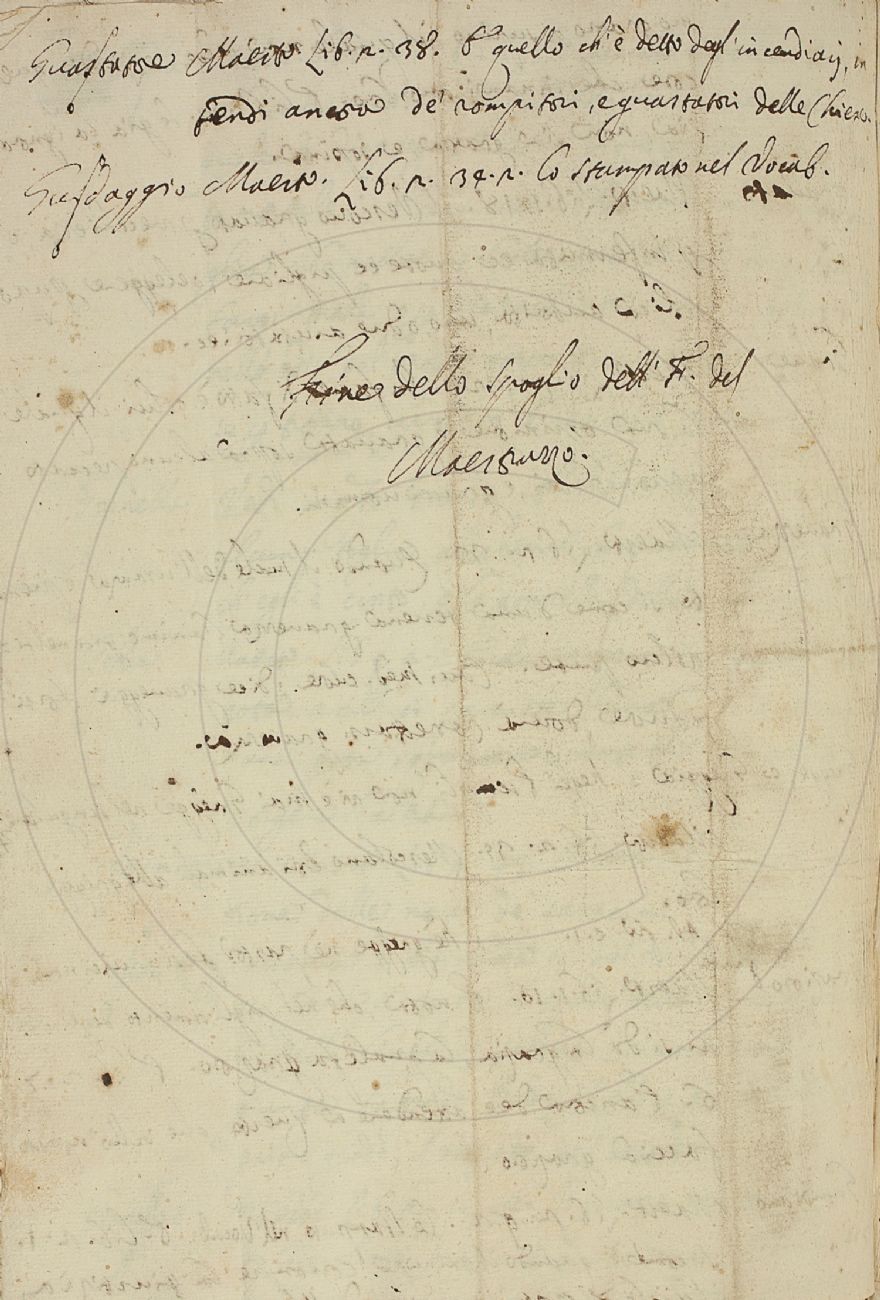 Guastatore Maestr. Lib. 2. 38. E quello ch'è detto degl'incendiarij, in
tendi ancora de' rompitori, e guastatori delle Chiese.
Guidaggio Maestr. Lib. 2. 34. 2. Lo stampato nel Vocab.
Fine dello spoglio dell' F. del
Maestruzzo.